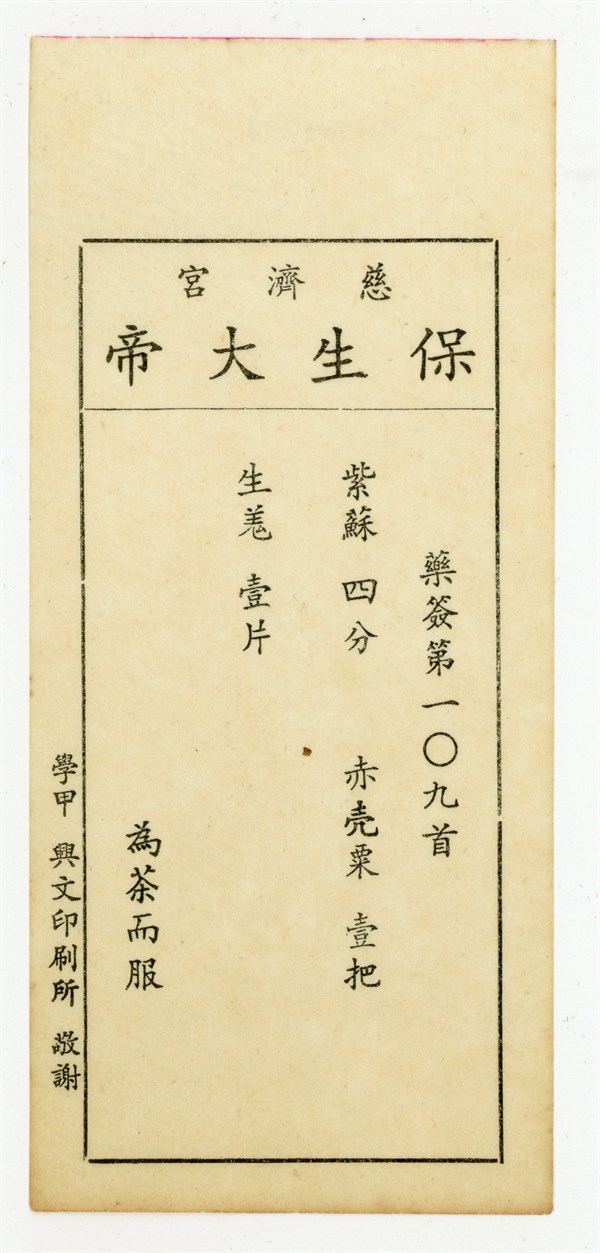 慈濟宮
保生大帝
藥簽第一〇九首
紫蘇 四分 赤壳粟 壹把
生羗 壹片
為茶而服
學甲 興文印刷所 敬謝